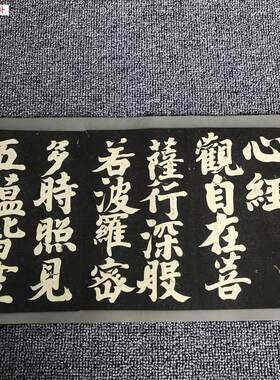 心經
觀自在菩
薩行深般
若波羅密
多時照見
五蘊皆空